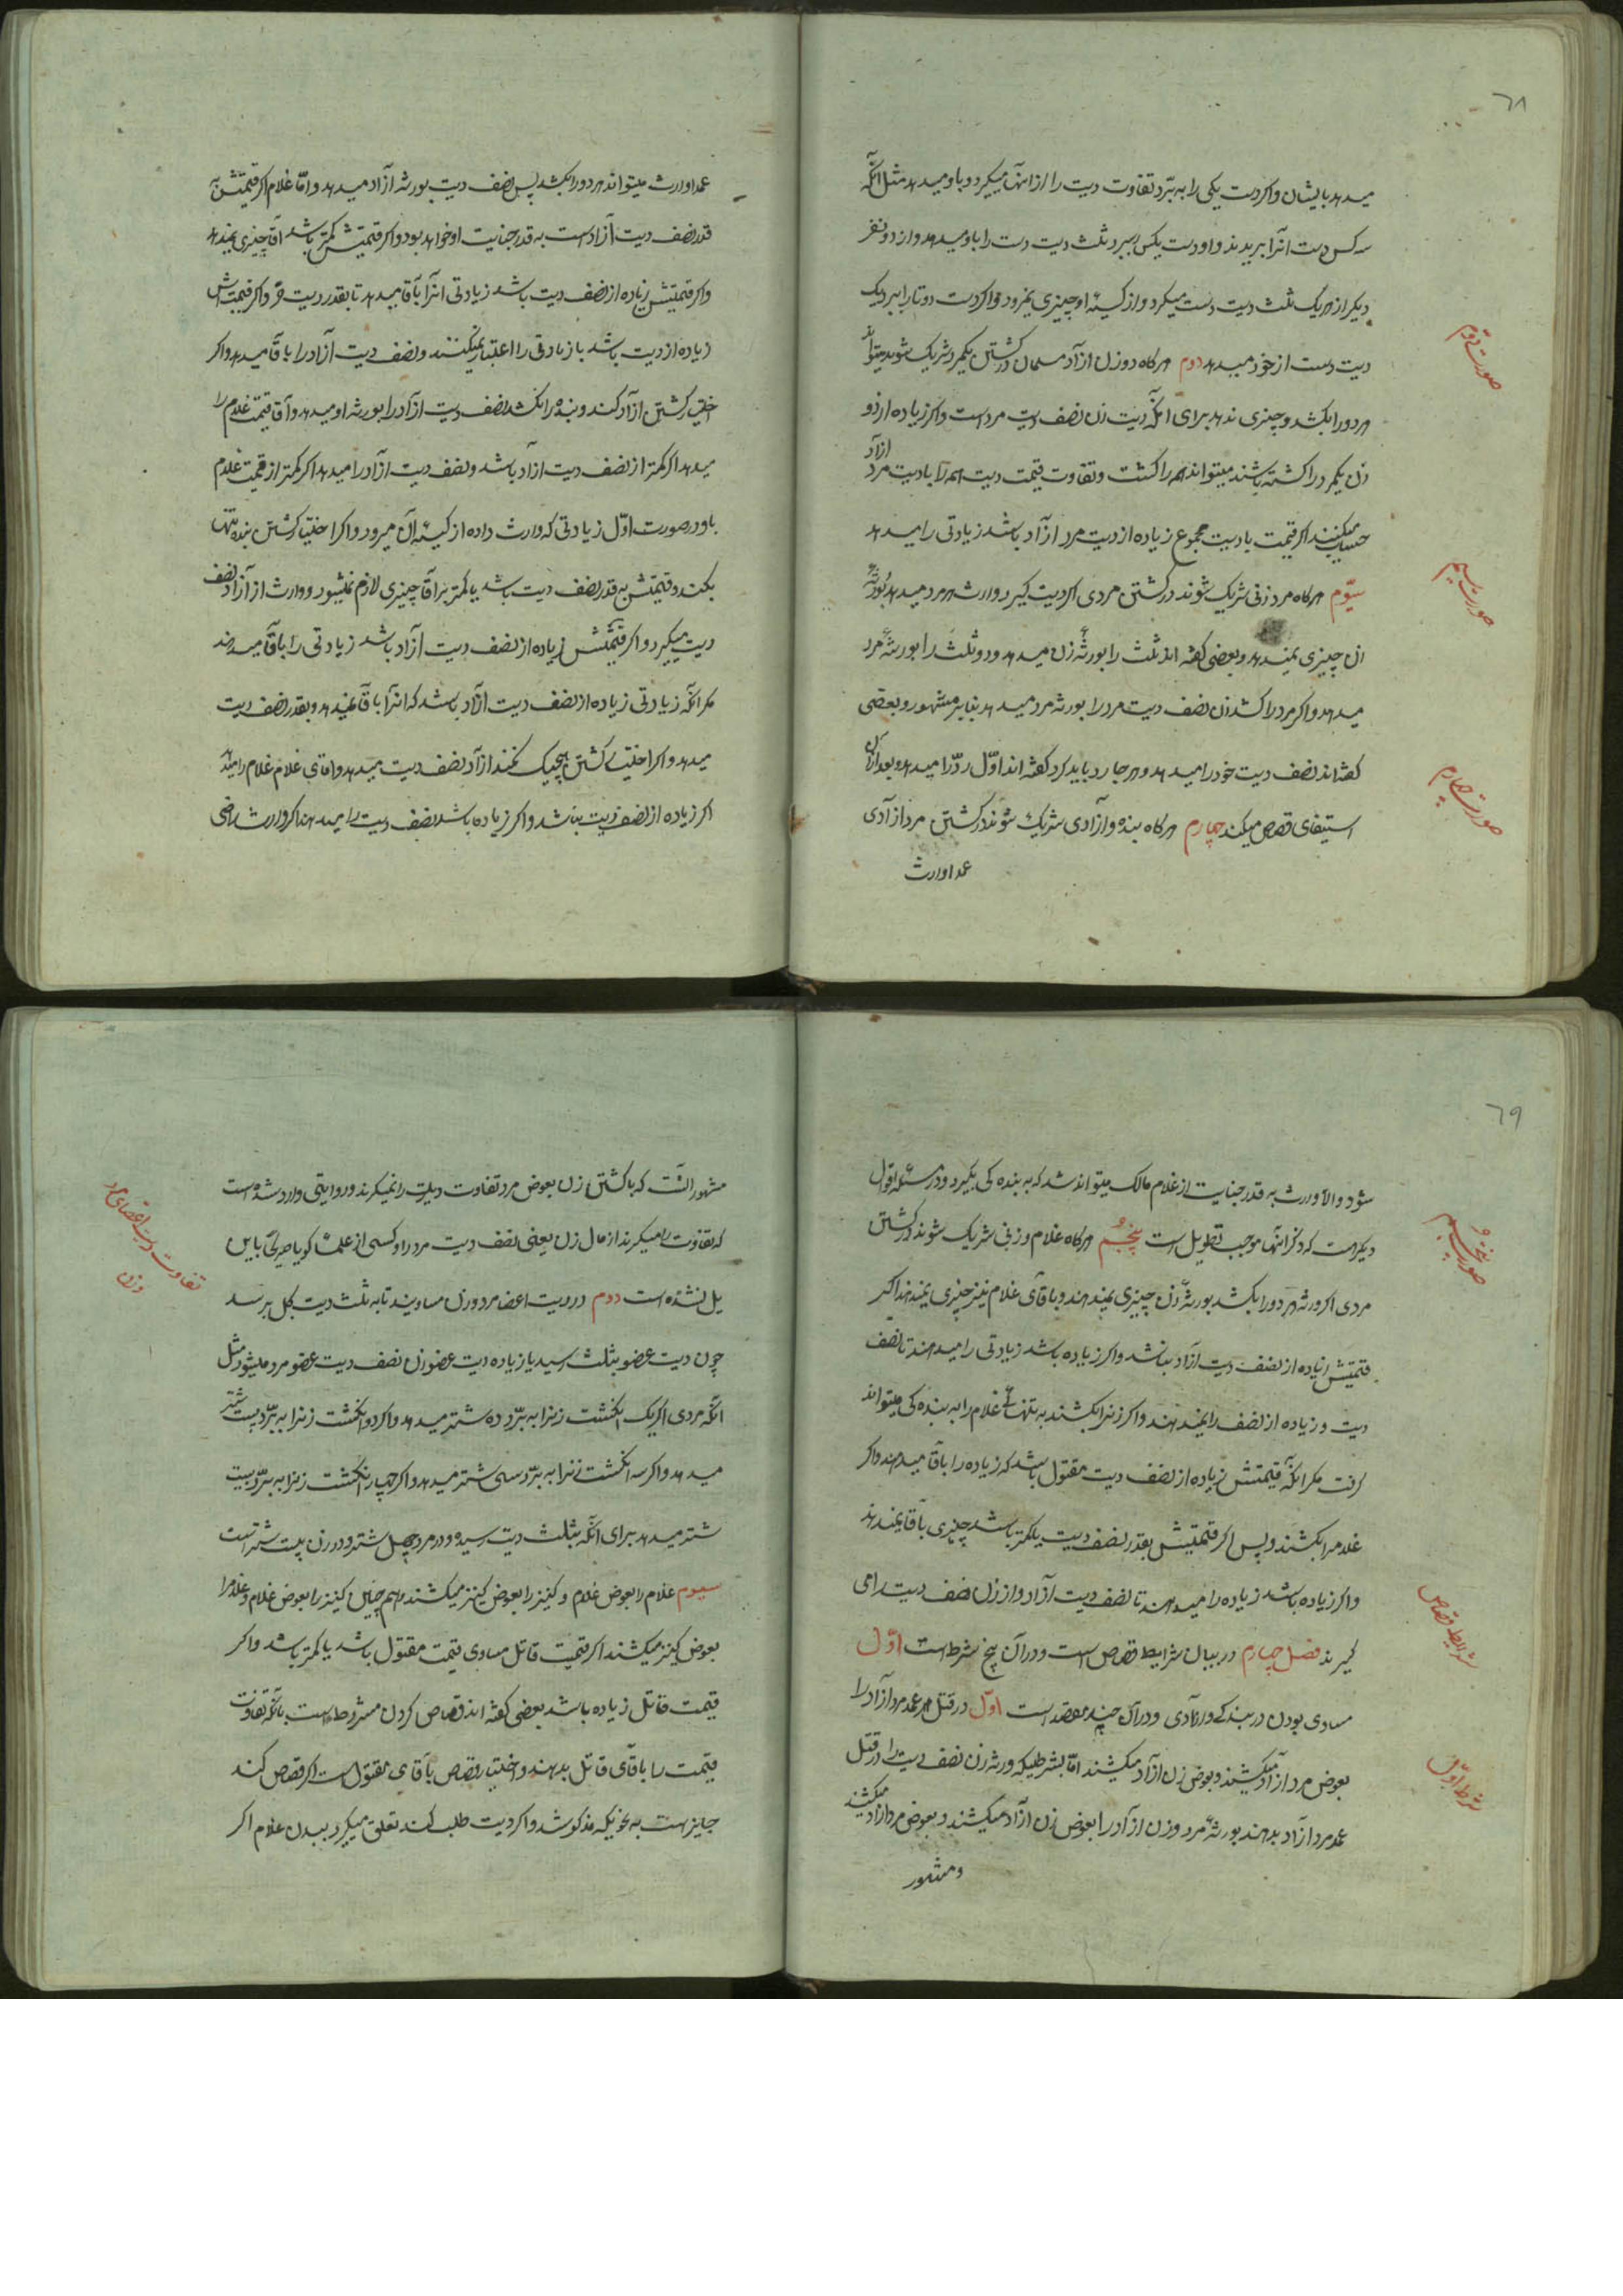 ٦٨
میدهد بایشان و اکر دست یکی را به برّد تفاوت دیت را از اینها میکیرد و باو میدهد مثل آنکه
سه کس دست آنرا بریدند و او دست یکس را ببرد ثلث دیت دست را باو میدهد و از دو نفر
دیکر از هر یک ثلث دیت دست میکرد و از کیسهٔ او چیزی نمیرود و اکر دست دو تا را ببرد یک
دیت دست از خود میدهد دوم هرکاه دو زن ازآد مسلمان در کشتن یکمرد شریک شوند میتواند
هر دو را بکشد و چیزی ندهد برای آنکه دیت زن نصف دیت مرد است و اکر زیاده از دو
زن یکمرد را کشته باشند میتواند همه را کشت و تفاوت قیمت دیت همه را با دیت مرد ازاد
حساب میکنند اکر قیمت با دیت مجموع زیاده از دیت مرد ازآد باشد زیادتی را میدهد
سیّوم هرکاه مرد زنی شریک شوند در کشتن مردی اکر دیت کیرد وارث هر مرد میدهد بورثهٔ
ان چیزی نمیدهد و بعضی کفته اند ثلث را بورثهٔ زن میدهد و دو ثلث را بورثهٔ مرد
میدهد و اکر مرد را کشد زن نصف دیت مرد را بورثه مرد میدهد بنا بر مشهور و بعضی
کفته اند نصف دیت خود را میدهد و هر جا رد باید کرد کفته اند اوّل ردّ را میدهد و بعد ازان
استیفای قصاص میکند چهارم هرکاه بنده و آزادی شریک شوند در کشتن مرد ازآدی
عمدا وارث
صورت دوّم
صورت سیم
صورت چهارم
عمدا وارث میتواند هر دو را بکشد پس نصف دیت بورثه ازآد میدهد و امّا غلام اکر قیمتش به
قدر نصف دیت آزاد است به قدر جنایت او خواهد بود و اکر قیمتش کمتر باشد آقا چیزی نمیدهد
و اکر قیمتش زیاده از نصف دیت باشد زیادتی آنرا بآقا میدهد تا بقدر دیت حرّ و اکر قیمت اش
زیاده از دیت باشد باز زیادتی را اعتبار نمیکنند و نصف دیت آزاد را باقا میدهد و اکر
اختیار کشتن ازآد کند و بنده را نکشد نصف دیت ازآد را بورثه او میدهد و آقا قیمت غلام را
میدهد اکر کمتر از نصف دیت ازآد باشد و نصف دیت ازآد را میدهد اکر کمتر از قیمت غلام
باو در صورت اوّل زیادتی که وارث داده از کیسهٔ آن میرود و اکر اختیار کشتن بنده تنها
بکند و قیمتش به قدر نصف دیت باشد یا کمتر بر آقا چیزی لازم نمیشود و وارث از آزاد نصف
دیت میکیرد و اکر قیمتش زیاده از نصف دیت آزاد باشد زیادتی را باقا میدهند
مکر آنکه زیادتی زیاده از نصف دیت ازآد باشد که انرا باقا نمیدهد و بقدر نصف دیت
میدهد و اکر اختیار کشتن هیچیک نکند ازآد نصف دیت میدهد و اقای غلام غلام را میدهد
اکر زیاده از نصف دیت نباشد و اکر زیاده باشد نصف دیت را میدهند اکر وارث راضی
٦٩
شود والّا وارث به قدر جنایت از غلام مالک میتواند شد که به بنده کی بکیرد و در مسئله اقوال
دیکر هست که ذکر انها موجب تطویل است پنجُم هرکاه غلام و زنی شریک شوند در کشتن
مردی اکر ورثه هر دو را بکشد بورثهٔ زن چیزی نمیدهند و باقای غلام نیز چیزی نمیدهند اکر
قیمتش زیاده از نصف دیت ازآد نباشد و اکر زیاده باشد زیادتی را میدهند تا نصف
دیت و زیاده از نصف را نمیدهند و اکر زنرا بکشند به تنهائی غلام را به بنده کی میتواند
کرفت مکر آنکه قیمتش زیاده از نصف دیت مقتول باشد که زیاده را باقا میدهند و اکر
غلامرا بکشند و بس اکر قیمتش بقدر نصف دیت یا کمتر باشد چیزی باقا نمیدهند
و اکر زیاده باشد زیاده را میدهند تا نصف دیت ازآد و از زن نصف دیت را می
کیرند فصل چهارم در بیان شرایط قصاص است و در آن پنج شرط است اوّل
مساوی بودن در بندکی و ازادی و در آن چند مقصد است اوّل در قتل عمد مرد ازآد را
بعوض مرد ازآد میکشند و بعوض زن ازآد میکشند امّا بشرطیکه ورثه زن نصف دیت را در قتل
عمد مرد ازآد بدهند بورثهٔ مرد و زن ازآد را بعوض زن ازآد میکشند و بعوض مرد ازاد میکشند
و مشهور
صورت پنجُم
شرایط قصاص
شرط اوّل
مشهور آنست که با کشتن زن بعوض مرد تفاوت دیت را نمیکرند و روایتی وارد شده است
که تفاوت را میکرند از مال زن یعنی نصف دیت مرد را و کسی از علما کویا صریحا باین
یل نشده است دوم در دیت اعضا مرد و زن مساویند تا به ثلث دیت کل برسد
چون دیت عضو بثلث رسید یا زیاده دیت عضو زن نصف دیت عضو مرد میشود مثل
آنکه مردی اکر یک انکشت زنرا به برّد ده شتر میدهد و اکر دو انکشت زنرا به برّد بیست شتر
میدهد و اکر سه انکشت زنرا به برّد سی شتر میدهد و اکر چهار انکشت زنرا به برّد بیست
شتر میدهد برای آنکه بثلث دیت رسیده و در مرد چهل شتر و در زن بیست شتر است
سیوم غلام را بعوض غلام و کنیز را بعوض کنیز میکشند و هم چنین کنیز را بعوض غلام و غلامرا
بعوض کنیز میکشند اکر قیمت قاتل مساوی قیمت مقتول باشد یا کمتر باشد و اکر
قیمت قاتل زیاده باشد بعضی کفته اند قصاص کردن مشروط است بآنکه تفاوت
قیمت را باقای قاتل بدهند و اختیار قصاص باقای مقتول است اکر قصاص کند
جایز است به نحویکه مذکور شد و اکر دیت طلب کند تعلق میکیرد ببدن غلام اکر
تفاوت دیت اعضای مرد
و زن